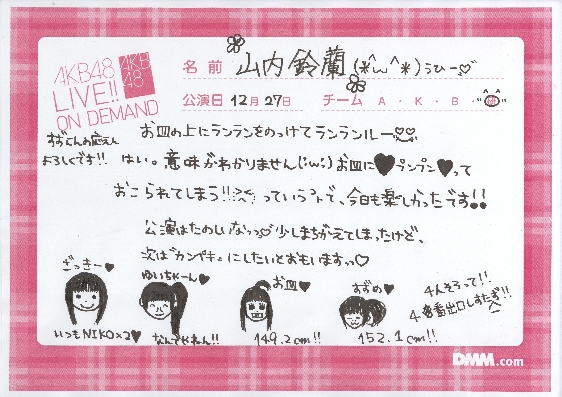 AKB48
LIVE!!
ON DEMAND
AKB
48
名前 山内鈴蘭(*^ω^*)うひー♡
公演日 12月27日 チーム A・K・B・研
すずらんの応えん
よろしくです!!
お皿の上にランランをのっけてランランルー
はい。意味がわかりません(;´ω`;)お皿に♥プンプン♥って
おこられてしまう!!
っていうコトで、今日も楽しかったです!!
公演はたのしいなっっ♡少しまちがえてしまったけど、
次は"カンペキ"にしたいとおもいますっ♡
ざっきー♥
いつもNIKO×2♥
ゆいちゃーん♥
なんでやねん!!
お皿♥
149.2cm!!
すずめ♥
152.1cm!!
4人そろって!!
4番番出口しすたず!!
DMM.com